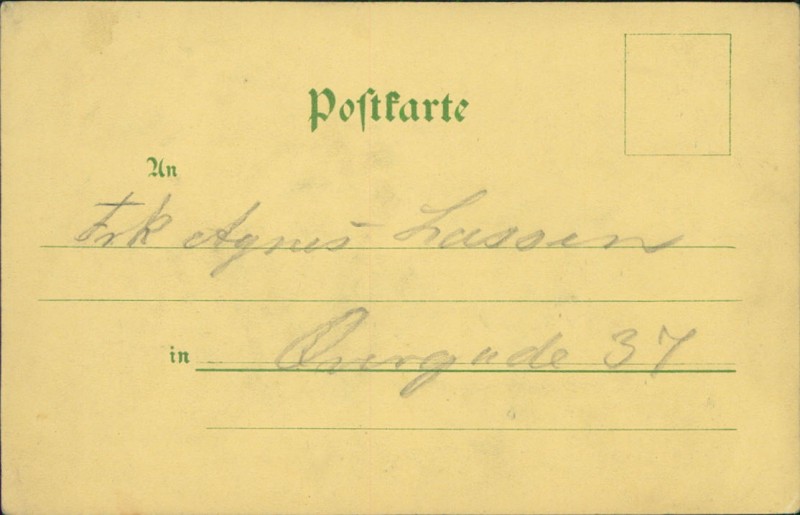 Postkarte
An
Frk Agnes Lassen
in Overgade 37